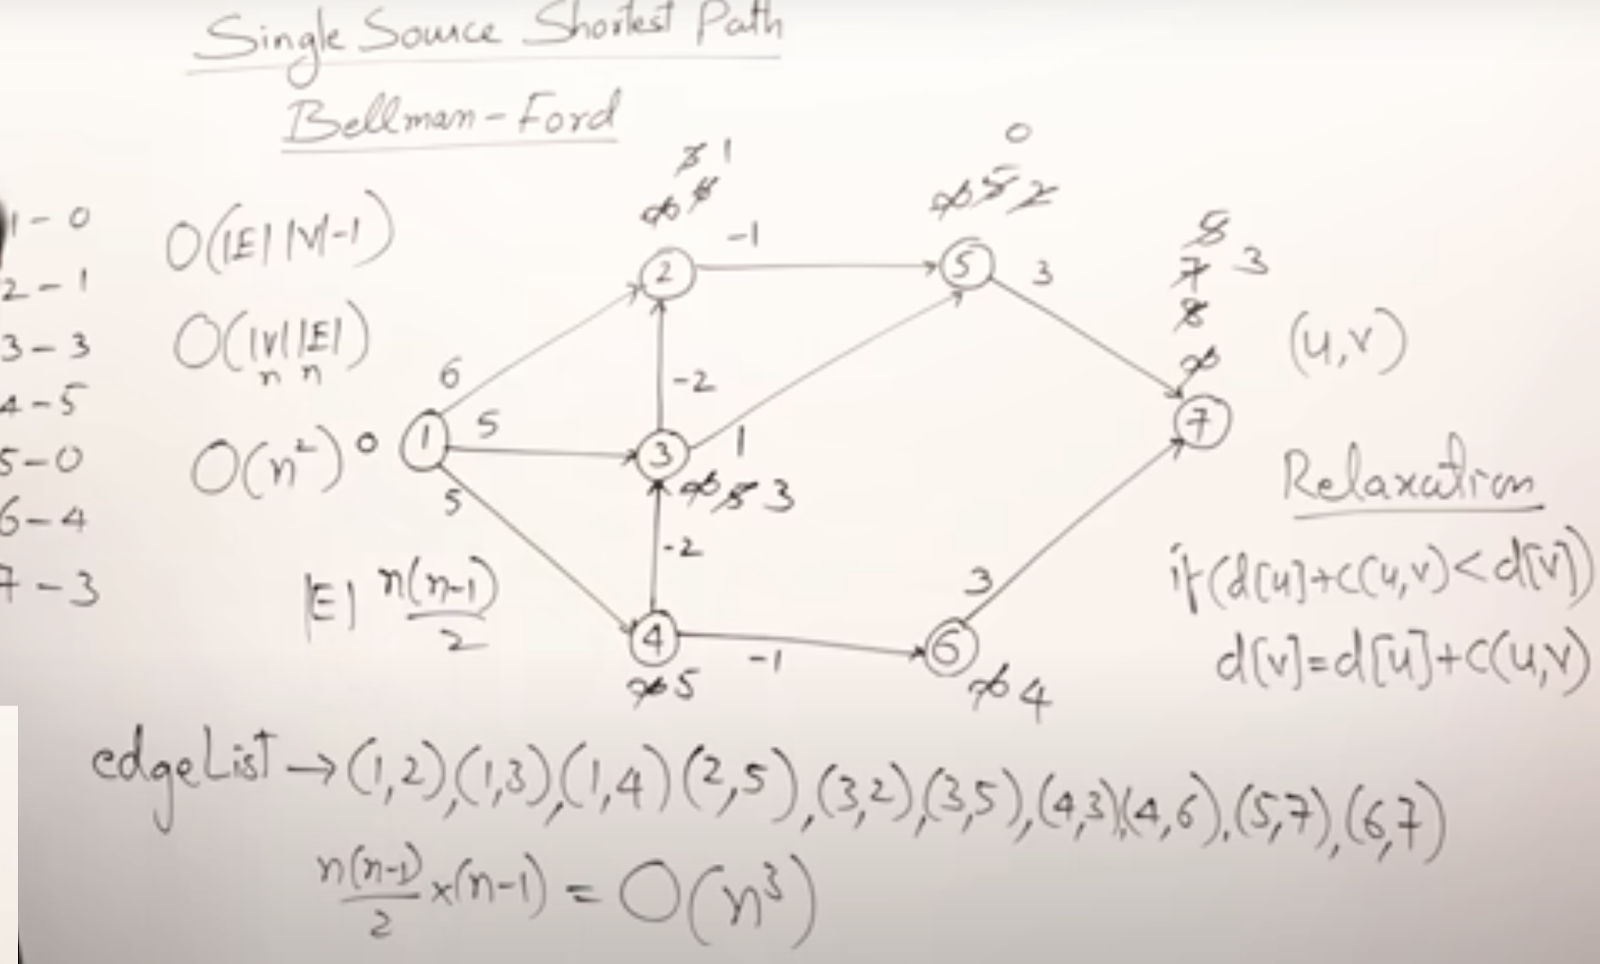 Single Source Shortest Path
Bellman-Ford
1-0
2-1
3-3
4-5
5-0
6-4
7-3
O(|E| |V|-1)
O(|V||E|)
n n
O(n²)
|E| n(n-1)/2
0
1
6
5
5
3 1
∞
2
-1
-2
3
∞ 5 3
1
-2
4
∞ 5
-1
0
∞ 5 2
5
3
6
∞ 4
3
8
7 3
8
∞
7
(u,v)
Relaxation
if(d[u]+c(u,v)<d[v])
d[v]=d[u]+c(u,v)
edgeList→(1,2),(1,3),(1,4)(2,5),(3,2),(3,5),(4,3)(4,6),(5,7),(6,7)
n(n-1)/2 x(n-1) = O(n³)